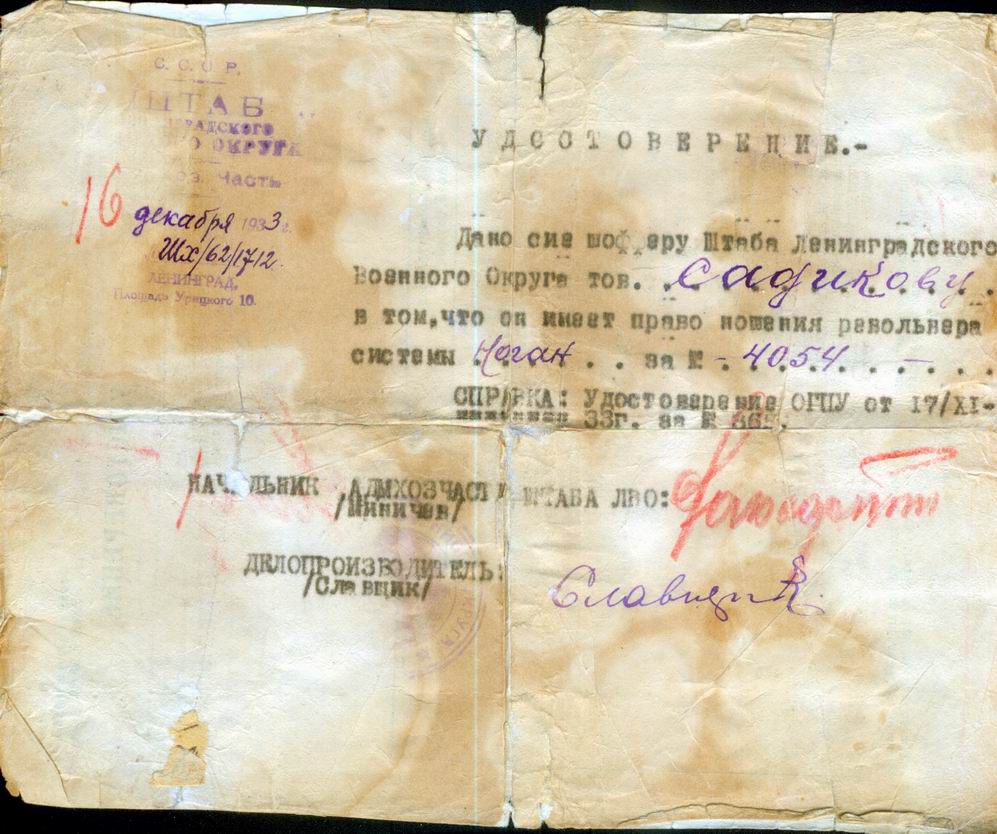 С.С.С.Р.
ШТАБ
РАДСКОГО
О ОКРУГА
Часть
16 декабря 1933г.
ШХ/62/1712.
ЛЕНИНГРАД,
Площадь Урицкого 10.
УДОСТОВЕРЕНИЕ.-
Дано сие шофферу Штаба Ленинградского
Военного Округа тов. Садикову.
в том,что он имеет право ношения револьвера
системы Наган . . за № - 4054 . . . -
СПРАВКА: Удостоверение ОГПУ от 17/XI-
33г. за №
НАЧАЛЬНИК АДМХОЗЧАСТИ ШТАБА ЛВО:
/Миничев/
ДЕЛОПРОИЗВОДИТЕЛЬ:
/Славщик/
Славщик